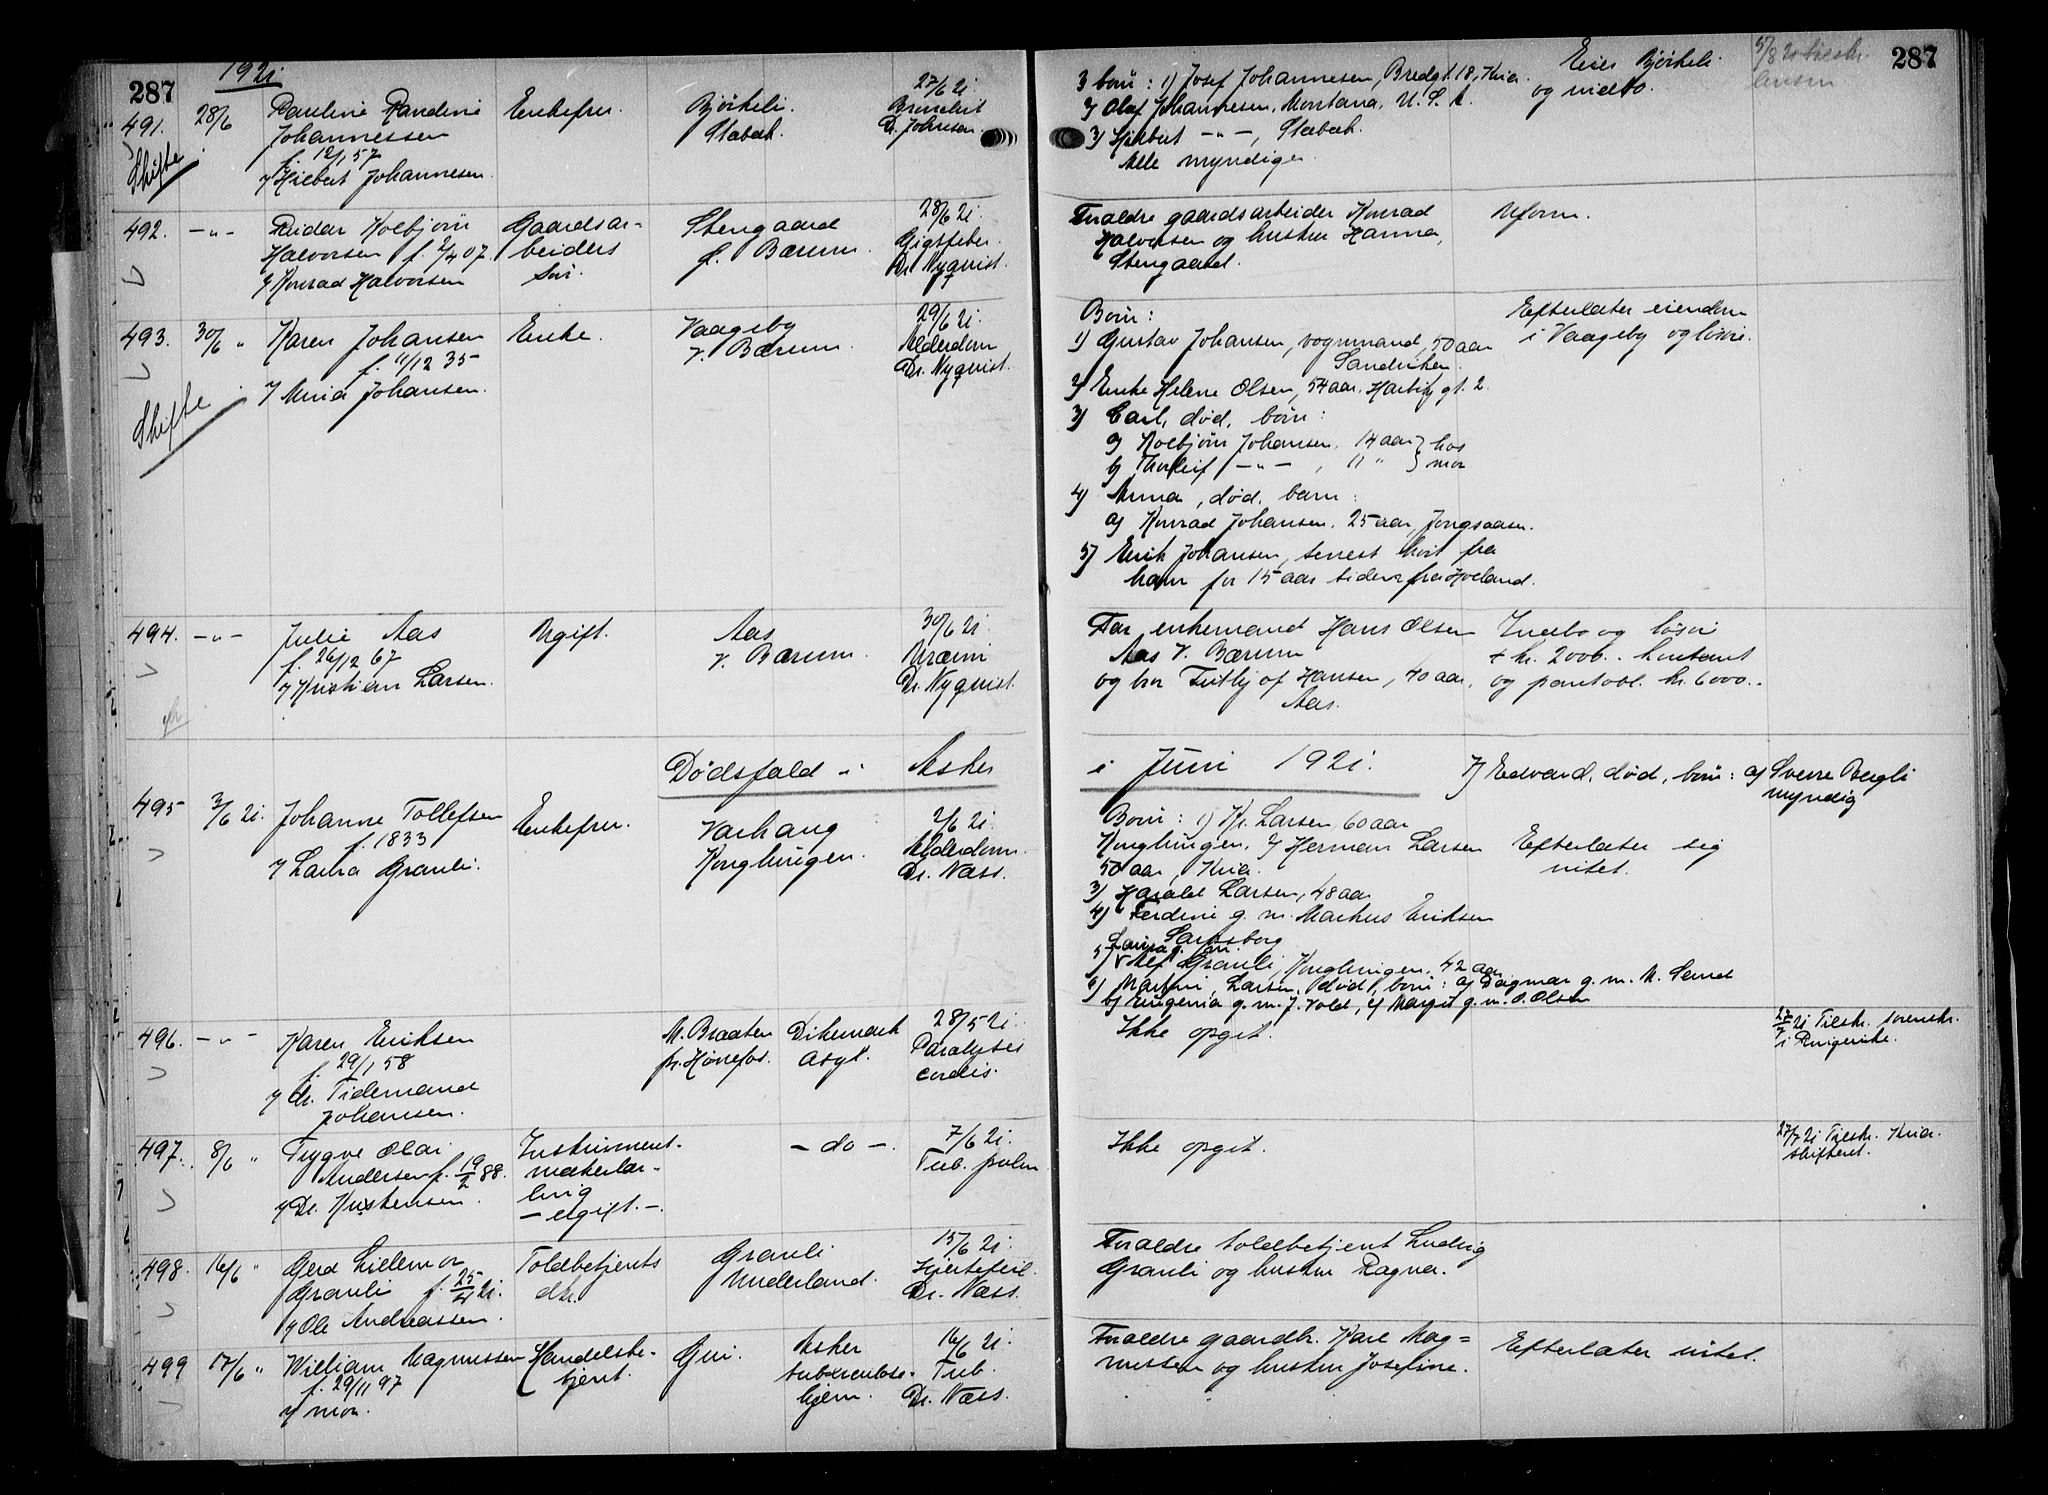 287
1921
491.
28/6
Pauline Randine
Johannessen
f. 12/1 57
v/ Hilbert Johannesen.
Skifte
Enkefru.
Bjørkeli.
Stabæk.
27/6 21.
Dr. Johnsen.
3 børn: 1) Josef Johannesen, Bredgt. 18, Kria.
2) Olaf Johannesen, Montana, U. S. A.
3) Hilbert -"-, Stabæk.
Alle myndige.
Eier Bjørkeli
og indbo.
287
492.
-"-
Reidar Kolbjørn
Halvorsen f. 2/4 07.
v/ Konrad Halvorsen
Gaardsar-
beiders
søn.
Stengaard
V. Bærum.
28/6 21.
Gigtfeber.
Dr. Nyquist.
Foraldre gaardsarbeider Konrad
Halvorsen og hustru Hanna,
Stengaard.
Uform.
493.
30/6 "
Karen Johansen
f. 11/12 35
v/ Mina Johansen.
Skifte
Enke.
Vaageby
V. Bærum.
29/6 21.
Alderdom
Dr. Nyquist.
Børn:
1) Gustav Johansen, vognmand, 50 aar
Sandviken.
2) Enke Helene Olsen, 54 aar, Harbitzgt. 2.
3) Carl, død, børn:
a) Kolbjørn Johansen, 14 aar } hos
b) Thorleif -"-, 11 " } mor
4) Anna, død, barn:
a) Konrad Johansen, 25 aar, Jongsaasen.
5) Erik Johansen, senest hørt fra
ham for 15 aar siden fra Holland.
Efterlater eiendom
i Vaageby og løsøre.
494.
-"-
Julie Aas
f. 26/12 67
v/ Kristian Larsen.
Ugift.
Aas
V. Bærum.
30/6 21.
Uræmi
Dr. Nyquist.
Far enkemand Hans Olsen
Aas V. Bærum
og bror Fritjof Hansen, 40 aar,
Aas.
Indbo og løsøre
+ kr. 2000.- kontant
og pantobl. kr. 6000.-
Dødsfald i Asker
i Juni 1921.
7) Edvard, død, børn: a) Sverre Bergli
myndig
495
3/6 21.
Johanne Tollefsen
f. 1833
v/ Laura Granli.
Enkefru.
Varhaug
Konglungen.
2/6 21.
Alderdom.
Dr. Næss.
Børn: 1) Kr. Larsen, 60 aar
Konglungen, 2) Herman Larsen
50 aar, Kria.
3) Harald Larsen, 48 aar
4) Ferdine g. m. Markus Eriksen
Sarpsborg
5) Laura g. m. Alf Granli, Konglungen, 42 aar
6) Martin Larsen, død, børn: a) Dagmar g. m. M. Sand
b) Eugenia g. m. J. Vold, c) Margit g. m. O. Olsen
Efterlater sig
intet.
496.
-"-
Karen Eriksen
f. 29/1 58
v/ Chr. Tidemand
Johansen.
M. Braaten
pr. Hønefos.
Dikemark
asyl.
28/5 21.
Paralysis
cordis.
Ikke opgit.
27/7 21 Tilskr. sorenskr.
i Ringerike.
497.
8/6 "
Trygve Olai
Andersen f. 19/2 88.
v/ Dr. Kristensen.
Instrument-
makerlær-
ling
- ugift. -
- do -.
7/6 21.
Tub. pulm
Ikke opgit.
27/7 21 Tilskr. Kria.
skifteret.
498.
16/6 "
Gerd Lillemor
Granli f. 25/4 21.
v/ Ole Andreassen.
Toldbetjents
dtr.
Granli
Underland.
15/6 21.
Hjertefeil.
Dr. Næss.
Foraldre toldbetjent Ludvig
Granli og hustru Ragna.
499
17/6 "
William Magnussen
f. 29/11 97
v/ mor.
Handelsbe-
tjent.
Gui.
Asker
tuberculose-
hjem.
16/6 21.
Tub.
Dr. Næss.
Foraldre gaardbr. Karl Mag=
nussen og hustru Josefine.
Efterlater intet.